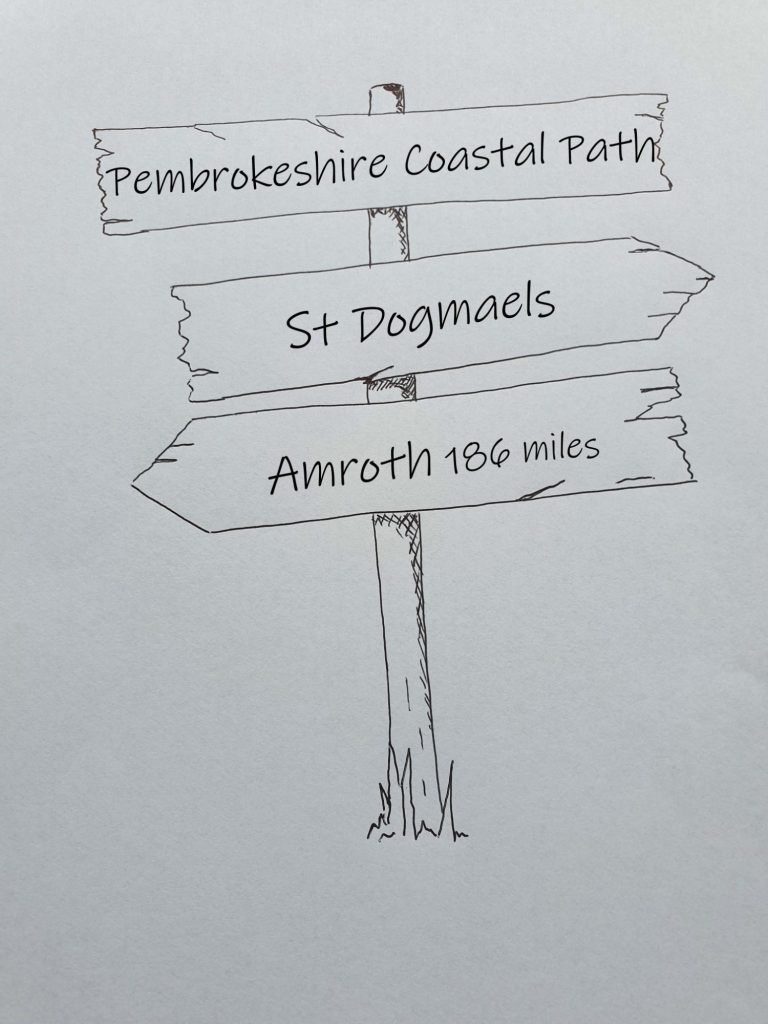 Pembrokeshire Coastal Path
St Dogmaels
Amroth 186 miles